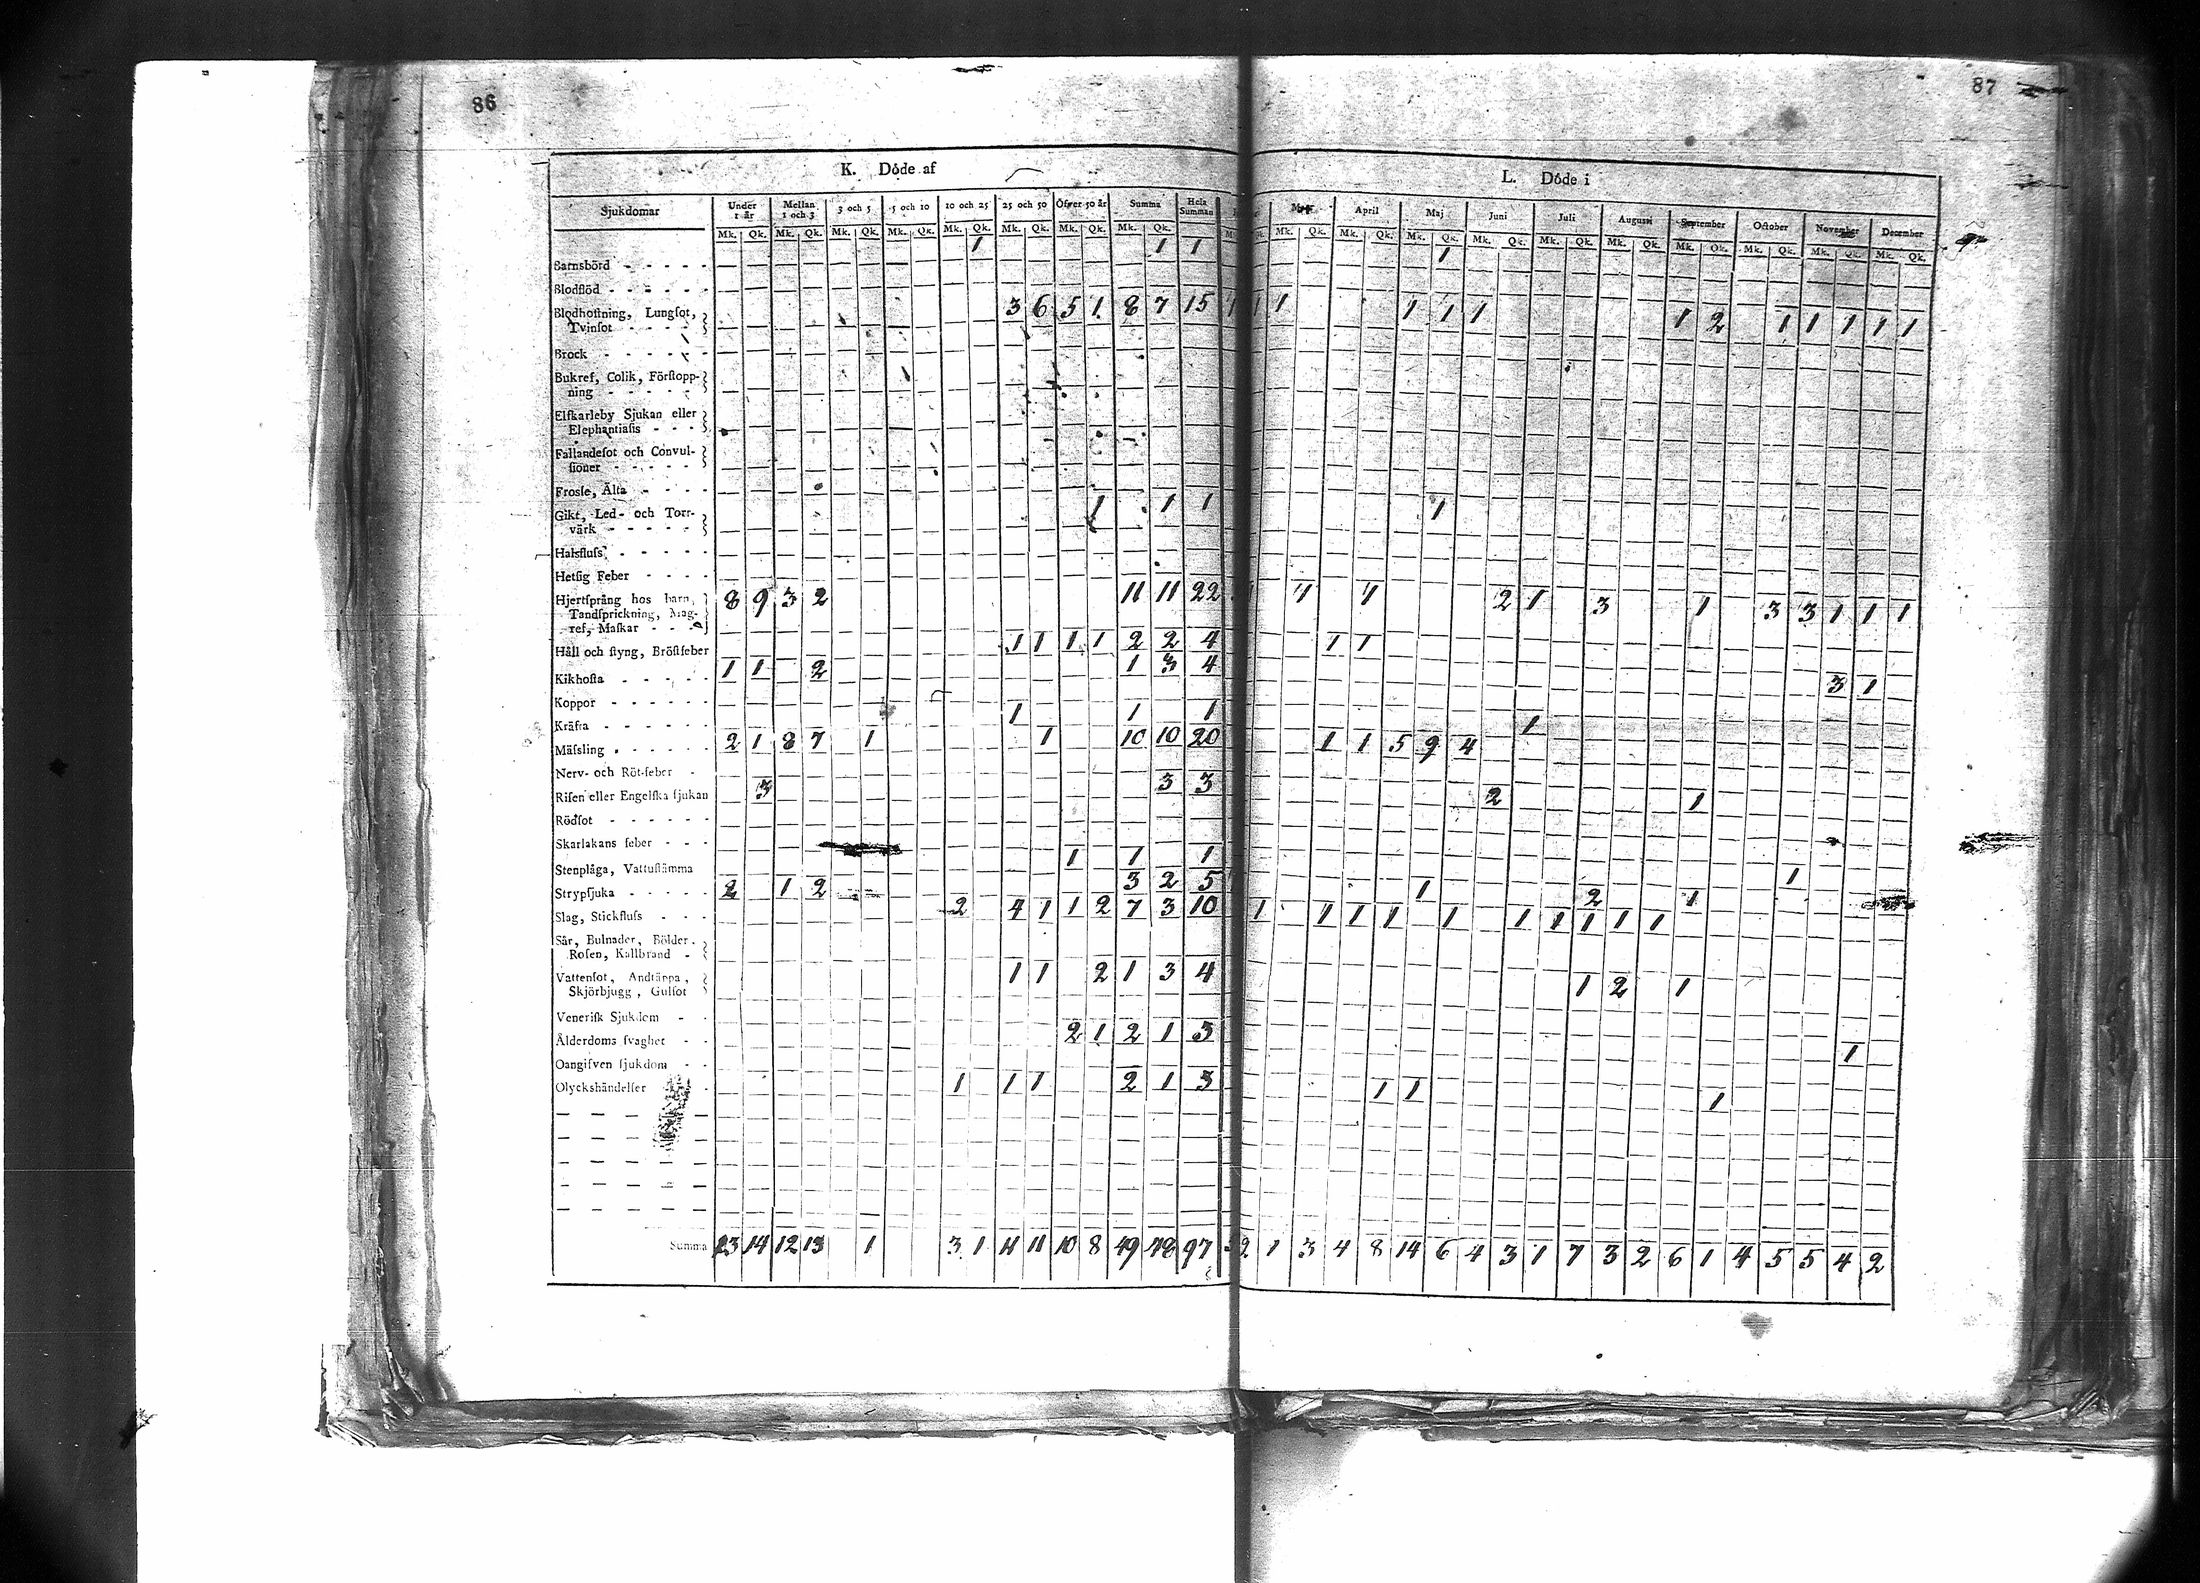 86
87
K. Döde af
L. Döde i
Sjukdomar Under 1 år Mellan 1 och 3 3 och 5 5 och 10 10 och 25 25 och 50 Öfver 50 år Summa Hela Summan
April Maj Juni Juli Augusti September October November December
Mk. Qk. Mk. Qk. Mk. Qk. Mk. Qk. Mk. Qk. Mk. Qk. Mk. Qk. Mk. Qk.
Mk. Qk. Mk. Qk. Mk. Qk. Mk. Qk. Mk. Qk. Mk. Qk. Mk. Qk. Mk. Qk. Mk. Qk. Mk. Qk.
Barnsbörd 1 1 1 1
Blodflöd
Blodhoſtning, Lungſot, 3 6 5 1 8 7 15 1 1 1 1 1 1 1 2 1 1 1 1 1
Tvinſot
Brock
Bukref, Colik, Förſtopp-
ning
Elfkarleby Sjukan eller
Elephantiaſis
Fallandeſot och Convul-
ſioner
Frosſe, Älta
Gikt, Led- och Torr- 1 1 1 1
värk
Halsfluſs
Hetſig Feber
Hjertſprång hos barn, 8 9 3 2 11 11 22 1 1 2 1 3 1 3 3 1 1 1
Tandſprickning, Mag-
ref, Maſkar
Håll och ſtyng, Bröſtfeber 1 1 1 1 2 2 4 1 1
Kikhoſta 1 1 2 1 3 4 3 1
Koppor
Kräfta 1 1 1 1
Mäſsling 2 1 8 7 1 1 10 10 20 1 1 5 9 4
Nerv- och Röt-feber
Riſen eller Engelſka ſjukan 3 3 3 2 1
Rödſot
Skarlakans feber
Stenplåga, Vattuſtämma 1 1 1 1
Strypſjuka 2 1 2 3 2 5 1 2 1
Slag, Stickfluſs 2 4 1 1 2 7 3 10 1 1 1 1 1 1 1 1 1 1
Sår, Bulnader, Bölder
Roſen, Kallbrand
Vattenſot, Andtäppa, 1 1 2 1 3 4 1 2 1
Skjörbjugg, Gulſot
Veneriſk Sjukdom
Ålderdoms ſvaghet 2 1 2 1 3 1
Oangifven ſjukdom
Olyckshändelſer 1 1 1 2 1 3 1 1 1
Summa 23 14 12 13 1 3 1 11 11 10 8 49 48 97 2 1 3 4 8 14 6 4 3 1 7 3 2 6 1 4 5 5 4 2